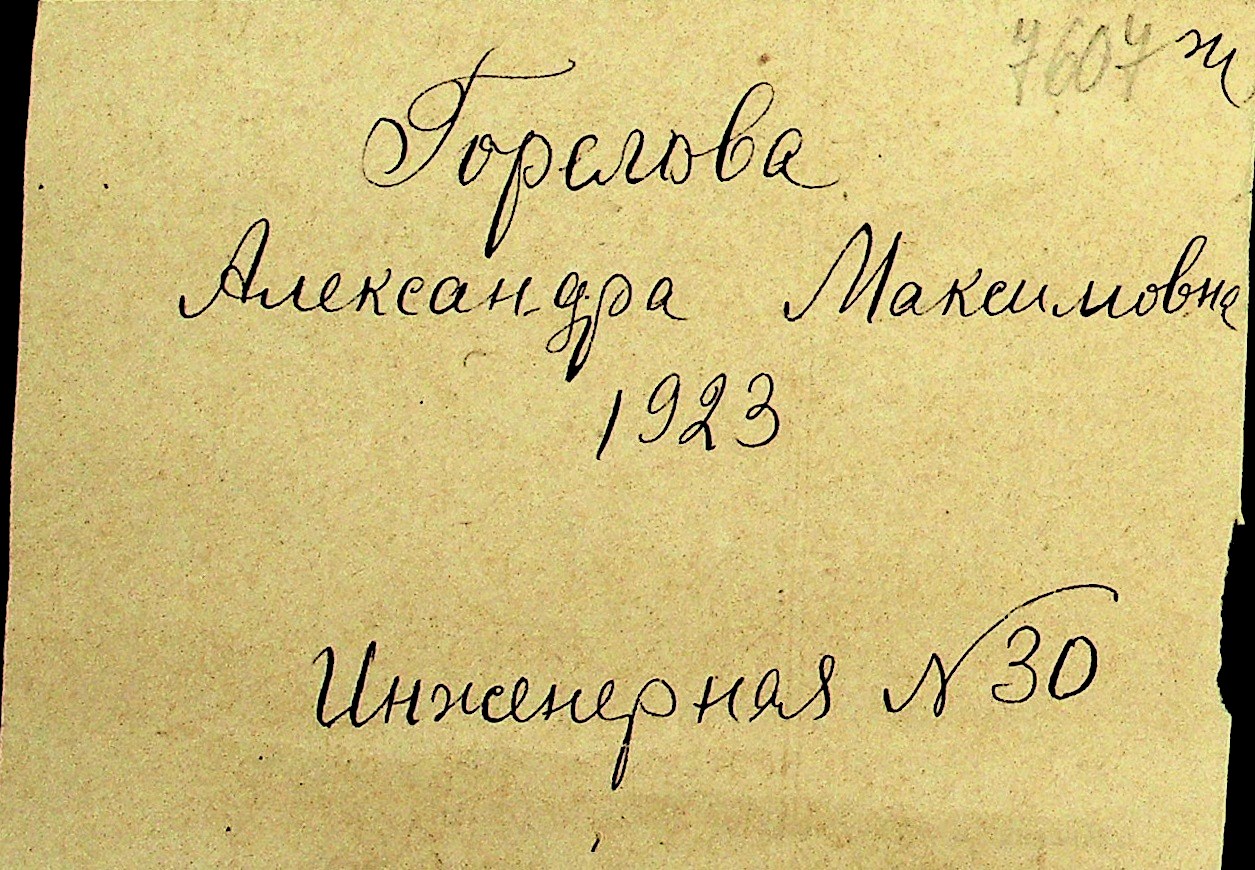 7607
Горелова
Александра Максимовна
1923
Инженерная № 30